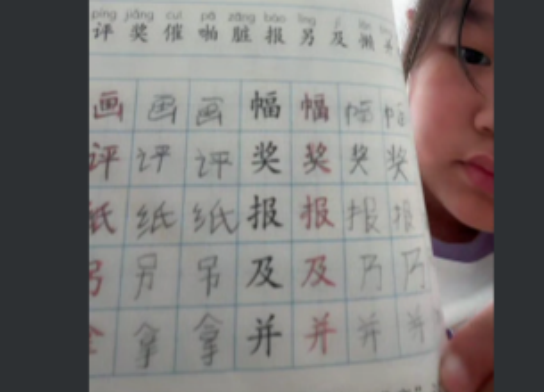 píng jiǎng cuī pā zāng bào lìng jí lǎn
评 奖 催 啪 脏 报 另 及 懒
画 画 画 幅 幅 幅 幅
评 评 评 奖 奖 奖 奖
纸 纸 纸 报 报 报 报
另 另 另 及 及
拿 拿 并 并 并 并